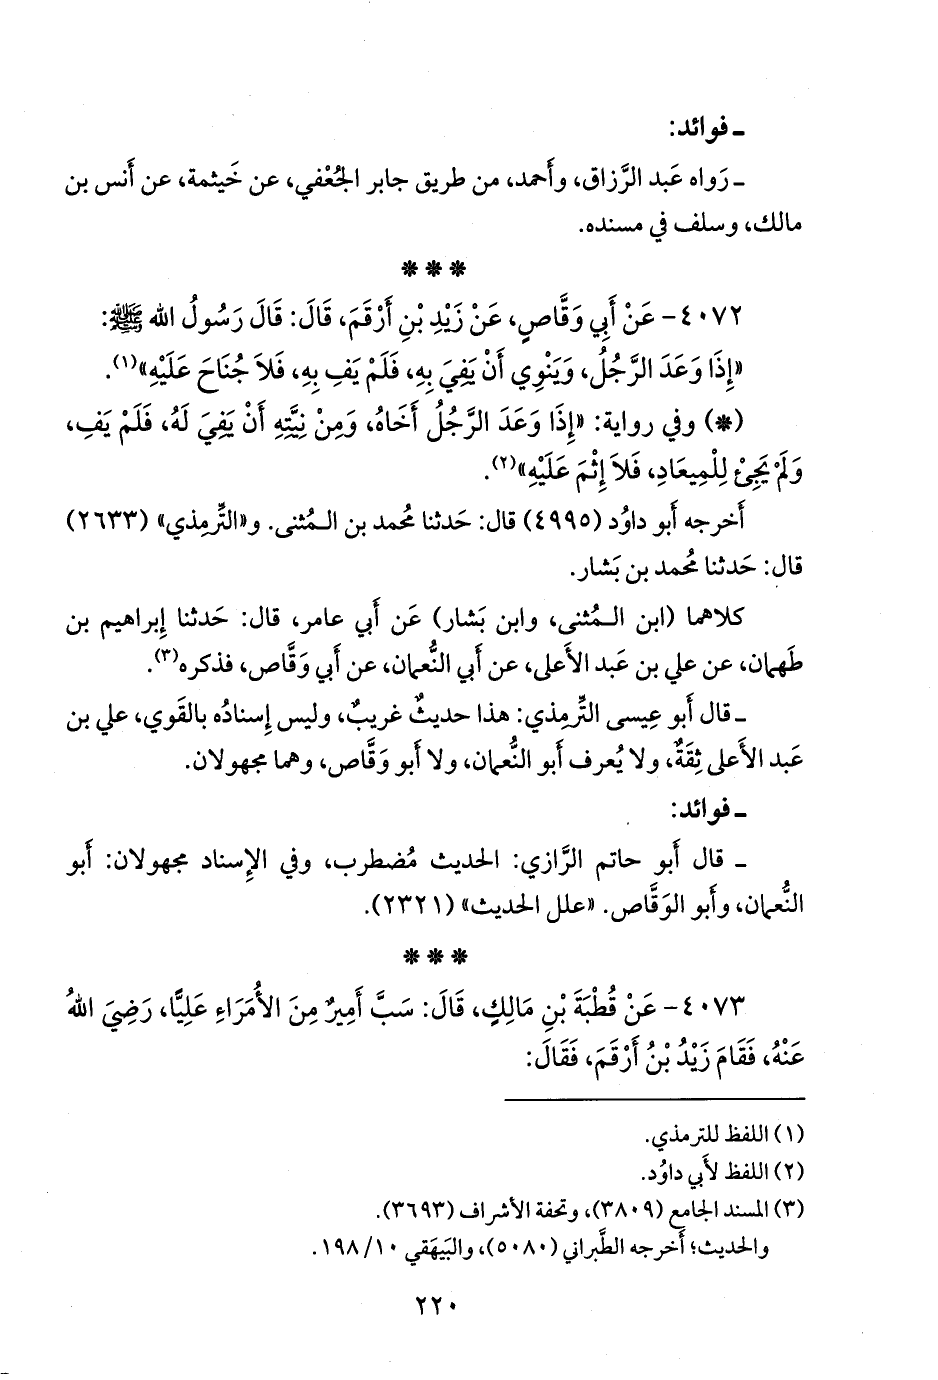 ـ فوائد:
ـ رَواه عَبد الرَّزاق، وأَحمد، من طريق جابر الجُعْفي، عن خَيثمة، عن أَنس بن
مالك، وسلف في مسنده.
* * *
٤٠٧٢- عَنْ أَبِي وَقَّاصٍ، عَنْ زَيْدِ بْنِ أَرْقَمَ، قَالَ: قَالَ رَسُولُ الله ﷺ:
«إِذَا وَعَدَ الرَّجُلُ، وَيَنْوِي أَنْ يَفِيَ بِهِ، فَلَمْ يَفِ بِهِ، فَلاَ جُنَاحَ عَلَيْهِ»(١).
(*) وفي رواية: «إِذَا وَعَدَ الرَّجُلُ أَخَاهُ، وَمِنْ نِيَّتِهِ أَنْ يَفِيَ لَهُ، فَلَمْ يَفِ،
وَلَمْ يَجِئْ لِلْمِيعَادِ، فَلاَ إِثْمَ عَلَيْهِ»(٢).
أَخرجه أَبو داوُد (٤٩٩٥) قال: حَدثنا مُحمد بن المُثنى. و«التِّرمِذي» (٢٦٣٣)
قال: حَدثنا مُحمد بن بَشار.
كلاهما (ابن المُثنى، وابن بَشار) عَن أَبي عامر، قال: حَدثنا إِبراهيم بن
طَهمان، عن علي بن عَبد الأَعلى، عن أَبي النُّعمان، عن أَبي وَقَّاص، فذكره(٣).
ـ قال أَبو عِيسى التِّرمِذي: هذا حديثٌ غريبٌ، وليس إِسنادُه بالقَوي، علي بن
عَبد الأَعلى ثِقَةٌ، ولا يُعرف أَبو النُّعمان، ولا أَبو وَقَّاص، وهما مجهولان.
ـ فوائد:
ـ قال أَبو حاتم الرَّازي: الحديث مُضطرب، وفي الإِسناد مجهولان: أَبو
النُّعمان، وأَبو الوَقَّاص. «علل الحديث» (٢٣٢١).
* * *
٤٠٧٣- عَنْ قُطْبَةَ بْنِ مَالِكٍ، قَالَ: سَبَّ أَمِيرٌ مِنَ الأُمَرَاءِ عَلِيًّا، رَضِيَ اللهُ
عَنْهُ، فَقَامَ زَيْدُ بْنُ أَرْقَمَ، فَقَالَ:
(١) اللفظ للترمذي.
(٢) اللفظ لأَبي داوُد.
(٣) المسند الجامع (٣٨٠٩)، وتحفة الأشراف (٣٦٩٣).
والحديث؛ أَخرجه الطَّبراني (٥٠٨٠)، والبَيهَقي ١٠/ ١٩٨.
٢٢٠